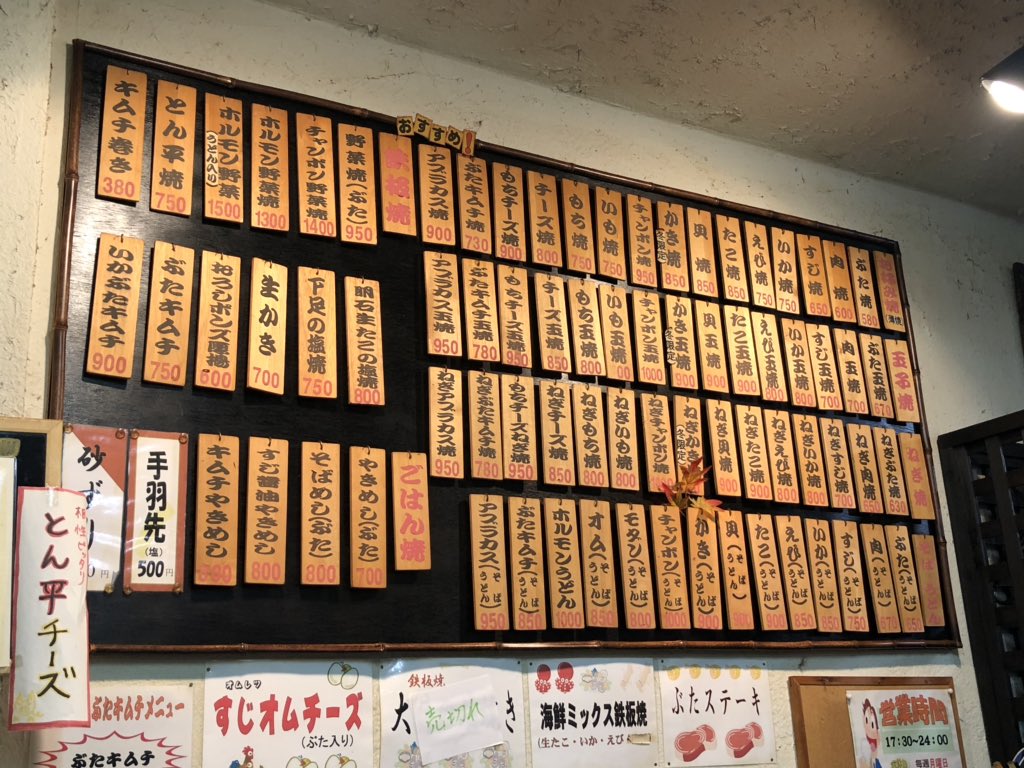 おすすめ!
ぶた焼 580
肉焼 600
すじ焼 650
いか焼 750
えび焼 750
たこ焼 850
貝焼 850
かき焼 (冬限定) 850
チャンポン焼 950
いも焼 750
もち焼 750
チーズ焼 800
もちチーズ焼 900
ぶたキムチ焼 730
アブラカス焼 900
鉄板焼
野菜焼(ぶたこ) 950
チャンポン野菜焼 1400
ホルモン野菜焼 1300
ホルモン野菜焼 (うどん入り) 1500
とん平焼 750
キムチ巻き 380
玉子焼
ぶた玉焼 670
肉玉焼 700
すじ玉焼 700
いか玉焼 800
えび玉焼
たこ玉焼 900
貝玉焼 900
かき玉焼 (冬限定) 900
チャンポン玉焼 1000
いも玉焼
もち玉焼 800
チーズ玉焼 850
もちチーズ玉焼 950
ぶたキムチ玉焼 780
アブラカス玉焼 950
明石生たこの塩焼 800
下足の塩焼 750
生かき 700
おろしポンズ 600
ぶたキムチ 750
いかぶたキムチ 900
ねぎ焼
ねぎぶた焼 630
ねぎ肉焼 650
ねぎすじ焼 700
ねぎいか焼 800
ねぎえび焼 800
ねぎたこ焼 900
ねぎ貝焼 900
ねぎかき (冬限定)
ねぎチャンポン
ねぎいも焼 800
ねぎもち焼 800
ねぎチーズ焼 850
もちチーズねぎ焼 950
ねぎぶたキムチ焼 780
ねぎアブラカス焼 950
ごはん焼
やきめし(ぶた) 700
そばめし(ぶた) 800
すじ醤油やきめし 800
キムチやきめし
ぶた(そば うどん)
肉(そば うどん)
すじ(そば うどん) 750
いか(そば うどん) 850
えび(そば うどん) 850
たこ(そば うどん) 900
貝(そば うどん)
かき(そば うどん) 900
チャンポン(そば うどん) 1000
モダン(そば うどん) 800
オム(そば うどん) 850
ホルモンうどん 1000
ぶたキムチ(そば うどん) 850
アブラカス(そば うどん) 950
手羽先 (塩) 500円
砂ず
円
相性ピッタリ
とん平チーズ
ぶたキムチメニュー
ぶたキムチ
オムレツ
すじオムチーズ
(ぶた入り)
鉄板焼
大
き
売切れ
海鮮ミックス鉄板焼
(生たこ・いか・えび
ぶたステーキ
営業時間
17:30~24:00
毎週月曜日